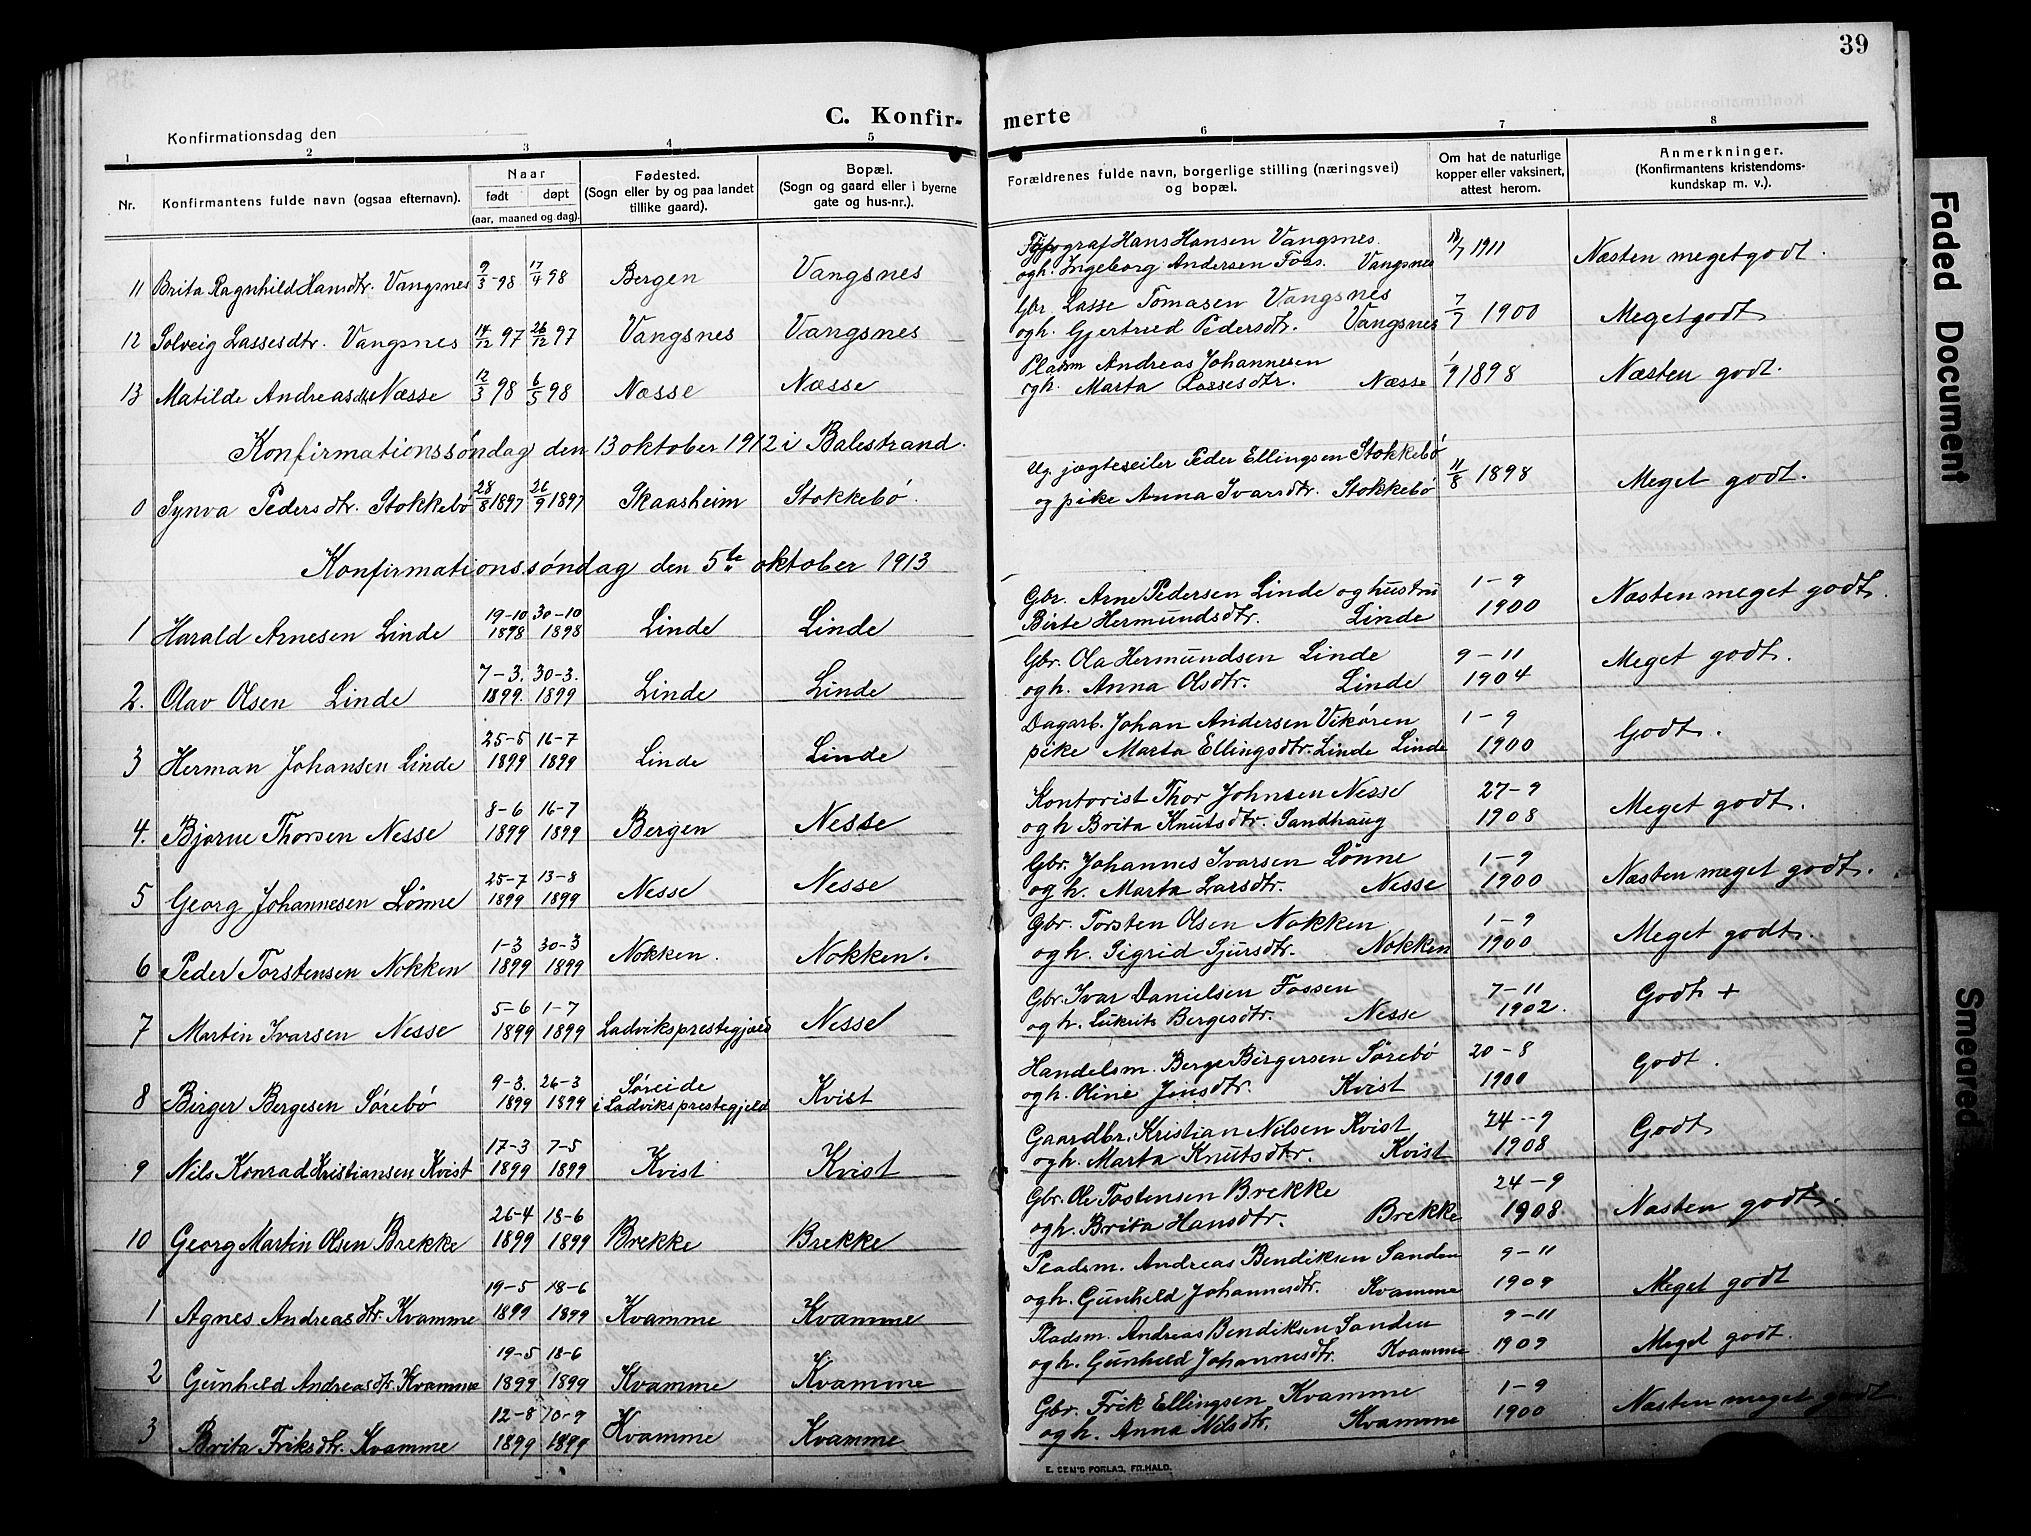 39
C. Konfir-
merte
Konfirmationsdag den
1 2 3 4 5 6 7 8
Nr.
Konfirmantens fulde navn (ogsaa efternavn).
Naar
født døpt
(aar, maaned og dag).
Fødested.
(Sogn eller by og paa landet
tillike gaard).
Bopæl.
(Sogn og gaard eller i byerne
gate og hus-nr.).
Forældrenes fulde navn, borgerlige stilling (næringsvei)
og bopæl.
Om hat de naturlige
kopper eller vaksinert,
attest herom.
Anmerkninger.
(Konfirmantens kristendoms-
kundskap m. v.).
Typograf Hans Hansen Vangsnes
11 Brita Ragnhild Hansdtr. Vangsnes 9/3-98 17/4 98 Bergen Vangsnes ogh. Ingeborg Andersen Foss. Vangsnes 18/7 1911 Næsten meget godt.
Gbr. Lasse Tomasen Vangsnes
12 Solveig Lassesdtr. Vangsnes 14/12 97 26/12 97 Vangsnes Vangsnes ogh. Gjertrud Pedersdtr. Vangsnes 7/7 1900 Meget godt
Pladsm Andreas Johannesen
13 Matilde Andreasdtr. Næsse 12/3 98 6/5 98 Næsse Næsse ogh. Marta Lassesdtr. Næsse 1/9 1898 Næsten godt.
Konfirmationssøndag den 13 oktober 1912 i Balestrand.
Ug. jægteseiler Peder Ellingsen Stokkebø
0 Synva Pedersdtr. Stokkebø 28/8 1897 26/9 1897 Skaasheim Stokkebø. og pike Anna Ivarsdtr. Stokkebø 11/8 1898 Meget godt.
Konfirmationssøndag den 5te oktober 1913
19-10 30-10 Gbr. Arne Pedersen Linde og hustru 1-9
1 Harald Arnesen Linde 1898 1898 Linde Linde Birte Hermundsdtr. Linde 1900 Næsten meget godt.
7-3. 30-3. Gbr. Ola Hermundsen Linde 9-11
2. Olav Olsen Linde 1899. 1899 Linde Linde ogh. Anna Olsdtr. Linde 1904 Meget godt.
25-5 16-7 Dagarb. Johan Andersen Vikøren 1-9
3 Herman Johansen Linde 1899 1899 Linde Linde pike Marta Ellingsdtr. Linde Linde 1900 Godt.
8-6 16-7 Kontorist Thor Johnsen Nesse 27-9
4. Bjarne Thorsen Nesse 1899 1899 Bergen Nesse ogh Brita Knutsdtr. Sandhaug 1908 Meget godt.
25-7 13-8 Gbr. Johannes Ivarsen Lønne 1-9
5 Georg Johannesen Lønne 1899 1899 Nesse Nesse ogh. Marta Larsdtr. Nesse 1900 Næsten meget godt.
1-3 30-3 Gbr. Torsten Olsen Nokken 1-9
6 Peder Torstensen Nokken 1899 1899 Nokken. Nokken. ogh. Sigrid Sjursdtr. Nokken 1900 Meget godt.
5-6 1-7 Gbr. Ivar Danielsen Fossen 7-11
7 Martin Ivarsen Nesse 1899 1899 Ladviksprestegjæld Nesse ogh. Bergesdtr. Nesse 1902. Godt +
9-3. 26-3 Søreide Handelsm. Berge Birgersen Sørebø 20-8
8 Birger Bergesen Sørebø 1899 1899 i Ladviksprestegjeld Kvist ogh. Oline Jensdtr. Kvist 1900 Godt.
17-3 7-5 Gaardbr. Kristian Nilsen Kvist 24-9
9 Nils Konrad Kristiansen Kvist 1899 1899 Kvist Kvist ogh. Marta Knutsdtr. Kvist 1908 Godt
26-4 18-6 Gbr. Ole Tostensen Brekke 24-9
10 Georg Martin Olsen Brekke 1899 1899 Brekke Brekke ogh. Brita Hansdtr. Brekke 1908 Næsten godt.
19-5 18-6 Pladsm. Andreas Bendiksen Sanden 9-11
1 Agnes Andreasdtr. Kvamme 1899 1899 Kvamme Kvamme ogh. Gunhild Johannesdtr. Kvamme 1909 Meget godt
19-5 18-6 Pladsm. Andreas Bendiksen Sanden 9-11
2 Gunhild Andreasdtr. Kvamme 1899 1899 Kvamme Kvamme ogh. Gunhild Johannesdtr. Kvamme 1909 Meget godt.
12-8 10-9 Gbr. Frik Ellingsen Kvamme 1-9
3 Brita Friksdtr. Kvamme 1899 1899 Kvamme Kvamme ogh. Anna Nilsdtr. Kvamme 1900 Næsten meget godt
E. SEM'S FORLAG, FR.HALD.
Faded Document
Smeared